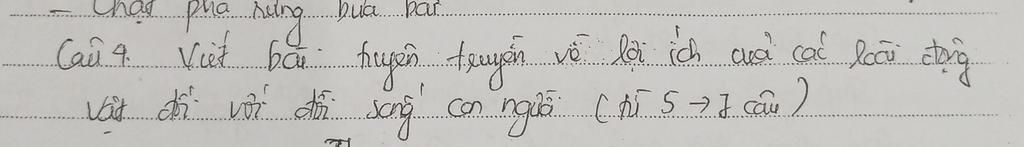 - Chạy phá hừng bừa bãi
Câu 4. Viết bài tuyên truyền về lợi ích của các loài động
vật đối với đời sống con người (từ 5 → 7 câu)